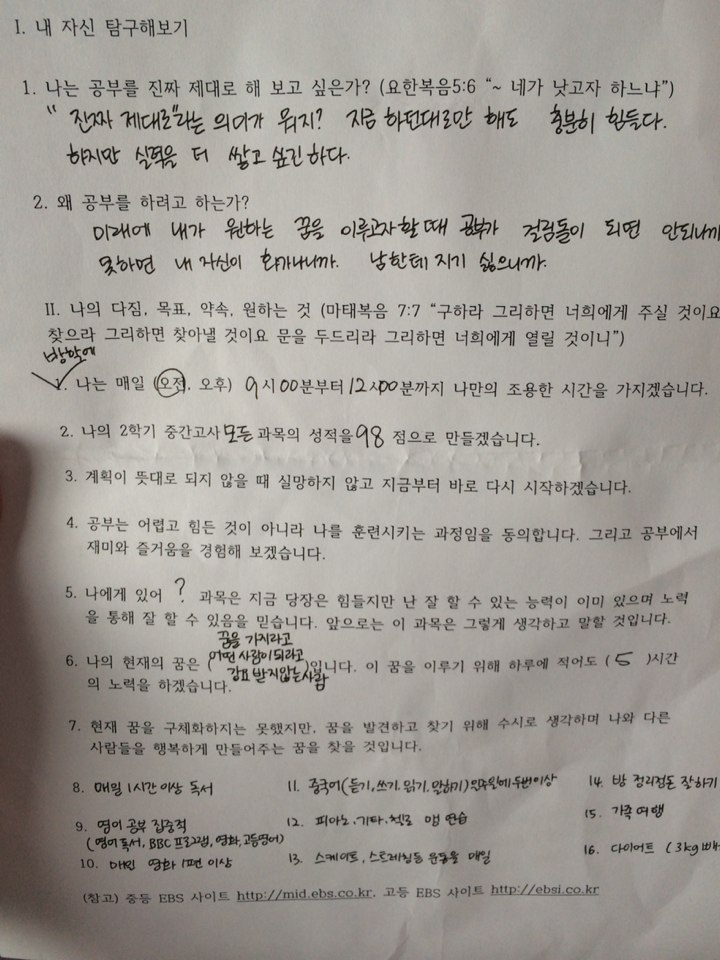 I. 내 자신 탐구해보기
1. 나는 공부를 진짜 제대로 해 보고 싶은가? (요한복음5:6 “~ 네가 낫고자 하느냐”)
“진짜 제대로”라는 의미가 뭐지? 지금 하던대로만 해도 충분히 힘들다.
하지만 실력을 더 쌓고 싶긴하다.
2. 왜 공부를 하려고 하는가?
미래에 내가 원하는 꿈을 이루고자 할 때 공부가 걸림돌이 되면 안되니까
못하면 내 자신이 화가나니까. 남한테 지기 싫으니까.
II. 나의 다짐, 목표, 약속, 원하는 것 (마태복음 7:7 “구하라 그리하면 너희에게 주실 것이요
찾으라 그리하면 찾아낼 것이요 문을 두드리라 그리하면 너희에게 열릴 것이니”)
방학에
1. 나는 매일 (오전, 오후) 9시00분부터 12시00분까지 나만의 조용한 시간을 가지겠습니다.
2. 나의 2학기 중간고사 모든 과목의 성적을 98 점으로 만들겠습니다.
3. 계획이 뜻대로 되지 않을 때 실망하지 않고 지금부터 바로 다시 시작하겠습니다.
4. 공부는 어렵고 힘든 것이 아니라 나를 훈련시키는 과정임을 동의합니다. 그리고 공부에서
재미와 즐거움을 경험해 보겠습니다.
5. 나에게 있어 ? 과목은 지금 당장은 힘들지만 난 잘 할 수 있는 능력이 이미 있으며 노력
을 통해 잘 할 수 있음을 믿습니다. 앞으로는 이 과목은 그렇게 생각하고 말할 것입니다.
꿈을 가지라고
어떤 사람이 되라고
6. 나의 현재의 꿈은 ( )입니다. 이 꿈을 이루기 위해 하루에 적어도 ( 5 )시간
강요 받지않는 사람
의 노력을 하겠습니다.
7. 현재 꿈을 구체화하지는 못했지만, 꿈을 발견하고 찾기 위해 수시로 생각하며 나와 다른
사람들을 행복하게 만들어주는 꿈을 찾을 것입니다.
8. 매일 1시간 이상 독서
9. 영어 공부 집중적
(영어독서, BBC 프로그램, 영화, 고등영어)
10. 매일 영화 1편 이상
11. 중국어(듣기, 쓰기, 읽기, 말하기) 일주일에 두번이상
12. 피아노, 기타, 첼로 맹 연습
13. 스케이트, 스트레칭등 운동을 매일
14. 방 정리정돈 잘하기
15. 가족 여행
16. 다이어트 (3kg
(참고) 중등 EBS 사이트 http://mid.ebs.co.kr, 고등 EBS 사이트 http://ebsi.co.kr